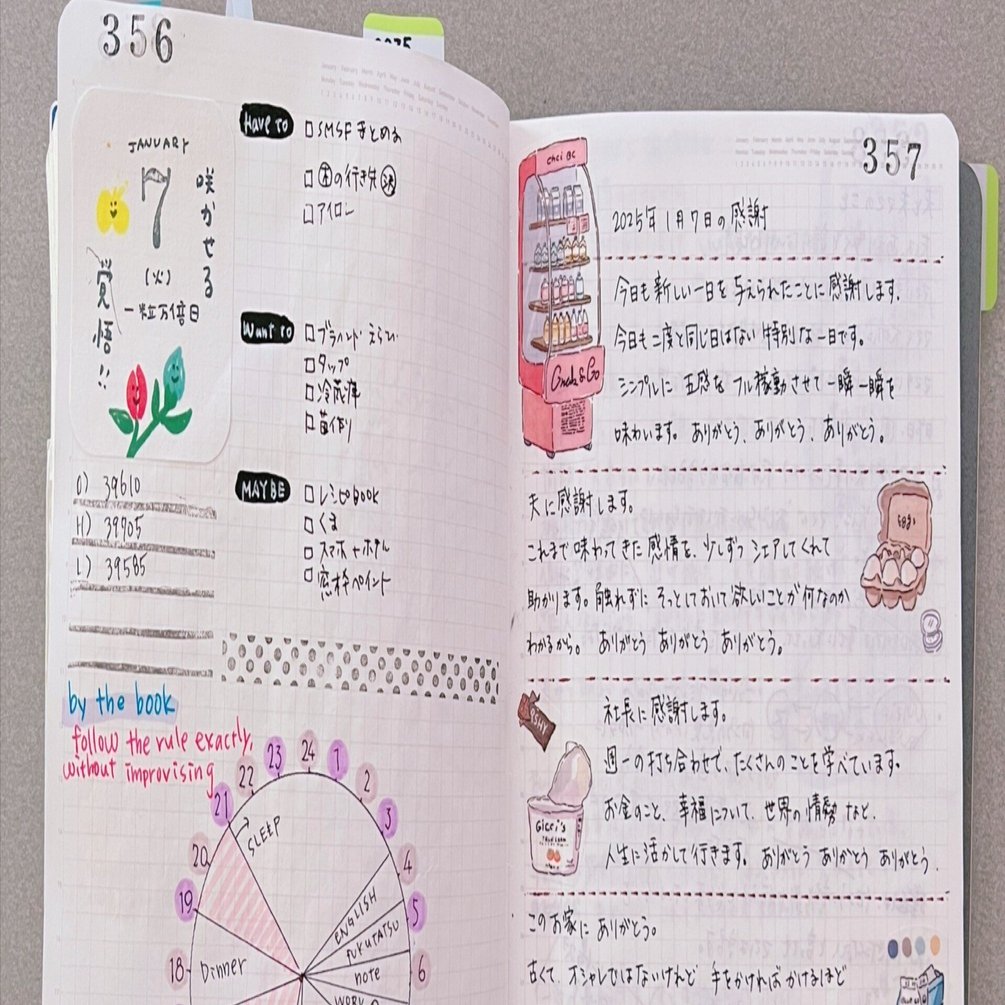 356
JANUARY
7
(火)
一粒万倍日
咲かせる
覚悟!!
Have to
SMSF まとめる
の行き先
アイロン
Want to
ブランドえらび
タップ
冷蔵庫
苗作り
MAYBE
レシピbook
くま
スマホ+ホテル
窓枠ペイント
O) 39610
H) 39705
L) 39585
by the book
follow the rule exactly,
without improvising
19
20
21
22
23
24
1
2
3
4
5
6
18
SLEEP
Dinner
ENGLISH
FUKUTATSU
note
WORK
357
2025年1月7日の感謝
今日も新しい一日を与えられたことに感謝します。
今日も二度と同じ日はない特別な一日です。
シンプルに五感をフル稼動させて一瞬一瞬を
味わいます。ありがとう、ありがとう、ありがとう。
夫に感謝します。
これまで味わってきた感情を、少しずつシェアしてくれて
助かります。触れずにそっとしておいて欲しいことが何なのか
わかるから。ありがとう ありがとう ありがとう。
社長に感謝します。
週一の打ち合わせで、たくさんのことを学べています。
お金のこと、幸福について、世界の情勢など、
人生に活かして行きます。ありがとう ありがとう ありがとう.
このお家にありがとう。
古くてオシャレではないけれど 手をかければかけるほど